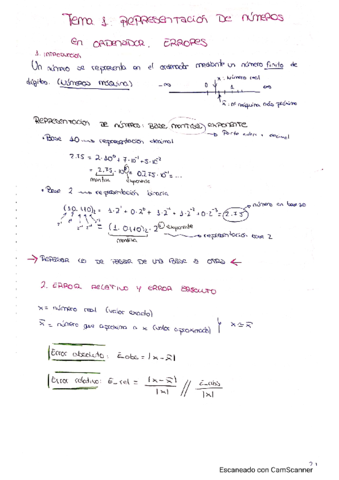 Tema 1. REPRESENTACIÓN DE NÚMEROS
EN ORDENADOR. ERRORES
1. INTRODUCCIÓN
Un número se representa en el ordenador mediante un número finito de
dígitos. (NÚMEROS MÁQUINA)
-∞ 0 1 ∞
x: número real
x̄: nº máquina más próximo
REPRESENTACIÓN DE NÚMEROS: BASE mantisa, exponente
Parte entera + decimal
• Base 10 → representación decimal
= 2.75 · 10⁰ = 0.275 · 10¹ = ...
mantisa exponente
• Base 2 → representación binaria
número en base 10
exponente
mantisa
representación base 2
→ REPASAR LO DE PASAR DE UNA BASE A OTRA ←
2. ERROR RELATIVO Y ERROR ABSOLUTO
x = número real (valor exacto)
x̄ = número que aproxima a x (valor aproximado) x ≈ x̄
Error absoluto: E_abs = |x - x̄|
Error relativo: E_rel = |x - x̄| / |x| // E_abs / |x|
Escaneado con CamScanner